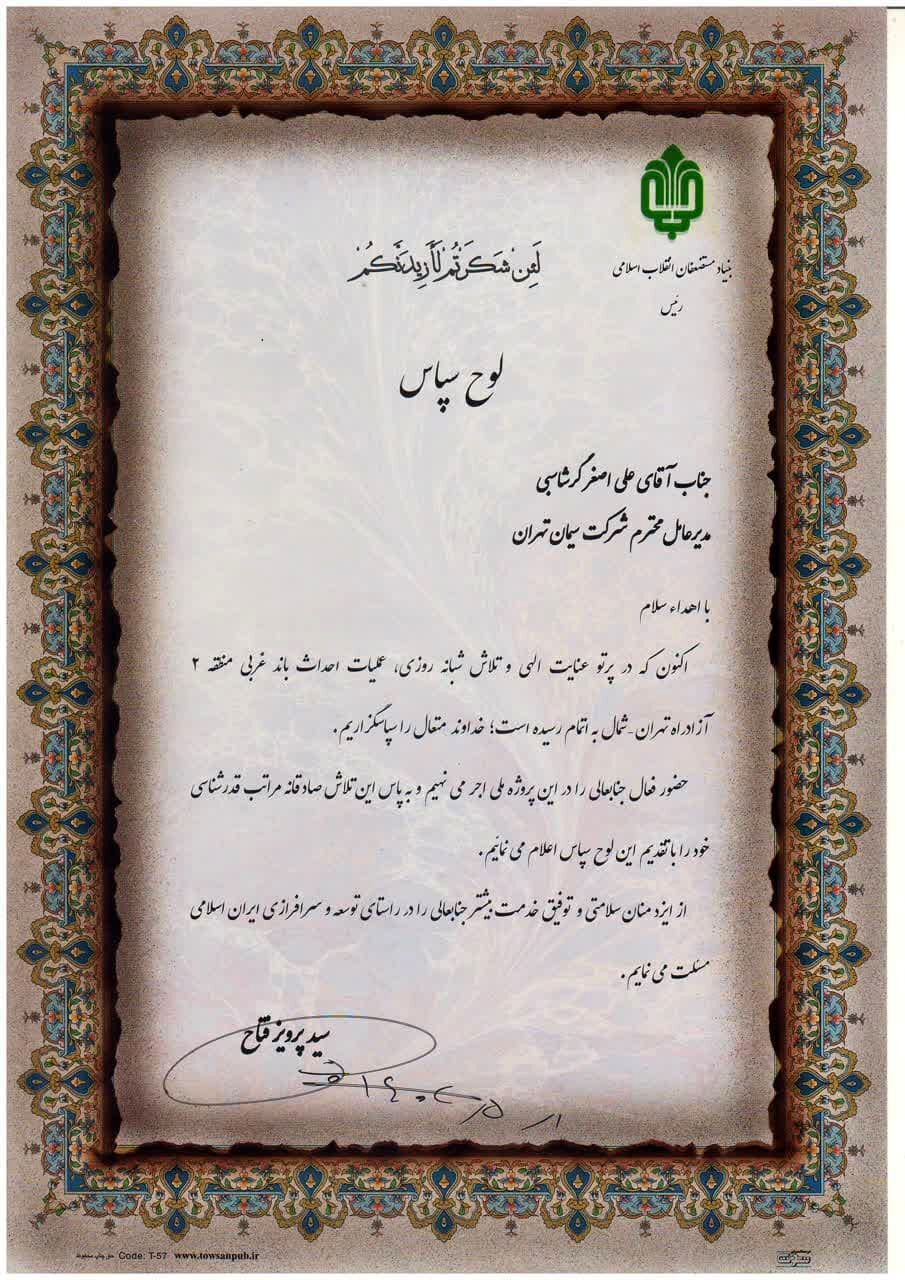 بنیاد مستضعفان انقلاب اسلامی
رئیس
لَئِن شَكَرْتُمْ لَأَزِيدَنَّكُمْ
لوح سپاس
جناب آقای علی اصغر گرشاسبی
مدیرعامل محترم شرکت سیمان تهران
با اهداء سلام
اکنون که در پرتو عنایت الهی و تلاش شبانه روزی، عملیات احداث باند غربی منطقه ۲
آزادراه تهران-شمال به اتمام رسیده است؛ خداوند متعال را سپاسگزاریم.
حضور فعال جنابعالی را در این پروژه ملی اجر می نهیم و به پاس این تلاش صادقانه مراتب قدرشناسی
خود را با تقدیم این لوح سپاس اعلام می نمائیم.
از ایزد منان سلامتی و توفیق خدمت بیشتر جنابعالی را در راستای توسعه و سرافرازی ایران اسلامی
مسئلت می نمایم.
سید پرویز فتاح
حق چاپ محفوظ Code: T-57 www.towsanpub.ir